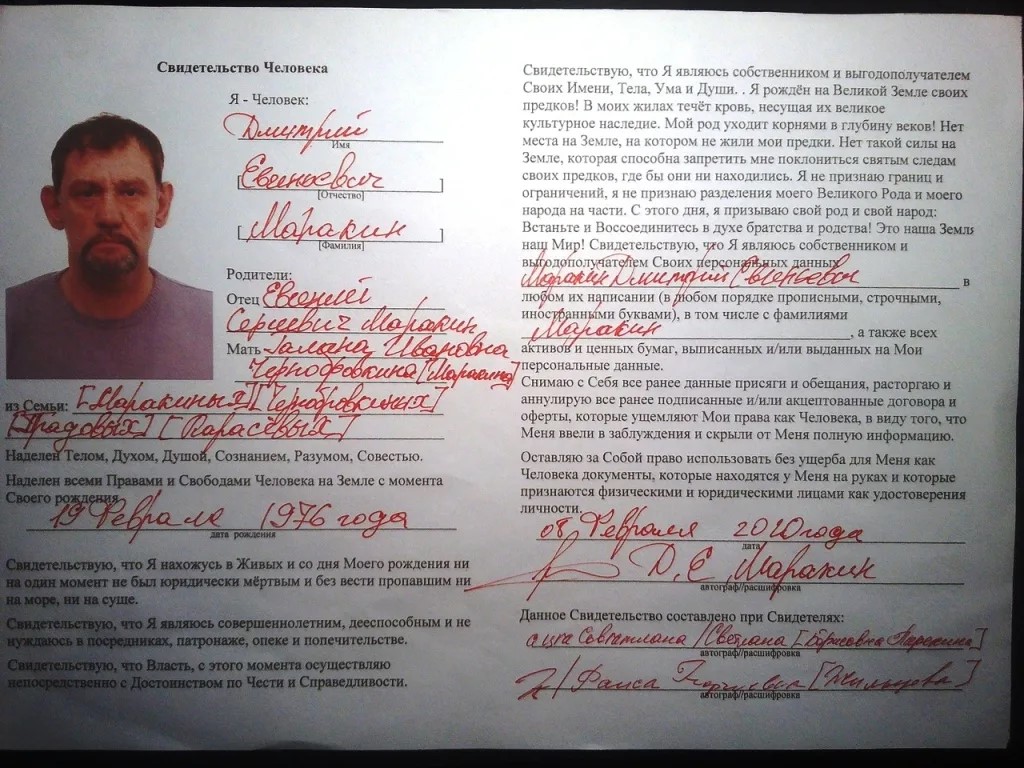 Свидетельство Человека
Я - Человек:
Дмитрий
Имя
[Евгеньевич]
[Отчество]
[Маракин]
[Фамилия]
Родители:
Отец Евгений
Сергеевич Маракин
Мать Галина Ивановна
[Маракина]
из Семьи: [Маракиных]
Наделен Телом, Духом, Душой, Сознанием, Разумом, Совестью.
Наделен всеми Правами и Свободами Человека на Земле с момента
Своего рождения
19 Февраля 1976 года
дата рождения
Свидетельствую, что Я нахожусь в Живых и со дня Моего рождения ни
на один момент не был юридически мёртвым и без вести пропавшим ни
на море, ни на суше.
Свидетельствую, что Я являюсь совершеннолетним, дееспособным и не
нуждаюсь в посредниках, патронаже, опеке и попечительстве.
Свидетельствую, что Власть, с этого момента осуществляю
непосредственно с Достоинством по Чести и Справедливости.
Свидетельствую, что Я являюсь собственником и выгодополучателем
Своих Имени, Тела, Ума и Души. . Я рождён на Великой Земле своих
предков! В моих жилах течёт кровь, несущая их великое
культурное наследие. Мой род уходит корнями в глубину веков! Нет
места на Земле, на котором не жили мои предки. Нет такой силы на
Земле, которая способна запретить мне поклониться святым следам
своих предков, где бы они ни находились. Я не признаю границ и
ограничений, я не признаю разделения моего Великого Рода и моего
народа на части. С этого дня, я призываю свой род и свой народ:
Встаньте и Воссоединитесь в духе братства и родства! Это наша Земля
наш Мир! Свидетельствую, что Я являюсь собственником и
выгодополучателем Своих персональных данных
Маракин Дмитрий Евгеньевич в
любом их написании (в любом порядке прописными, строчными,
иностранными буквами), в том числе с фамилиями
Маракин, а также всех
активов и ценных бумаг, выписанных и/или выданных на Мои
персональные данные.
Снимаю с Себя все ранее данные присяги и обещания, расторгаю и
аннулирую все ранее подписанные и/или акцептованные договора и
оферты, которые ущемляют Мои права как Человека, в виду того, что
Меня ввели в заблуждения и скрыли от Меня полную информацию.
Оставляю за Собой право использовать без ущерба для Меня как
Человека документы, которые находятся у Меня на руках и которые
признаются физическими и юридическими лицами как удостоверения
личности.
08 Февраля 2020 года
дата
Д. Е. Маракин
автограф//расшифровка
Данное Свидетельство составлено при Свидетелях:
/Светлана [Борисовна]
автограф//расшифровка
/ Раиса
автограф//расшифровка